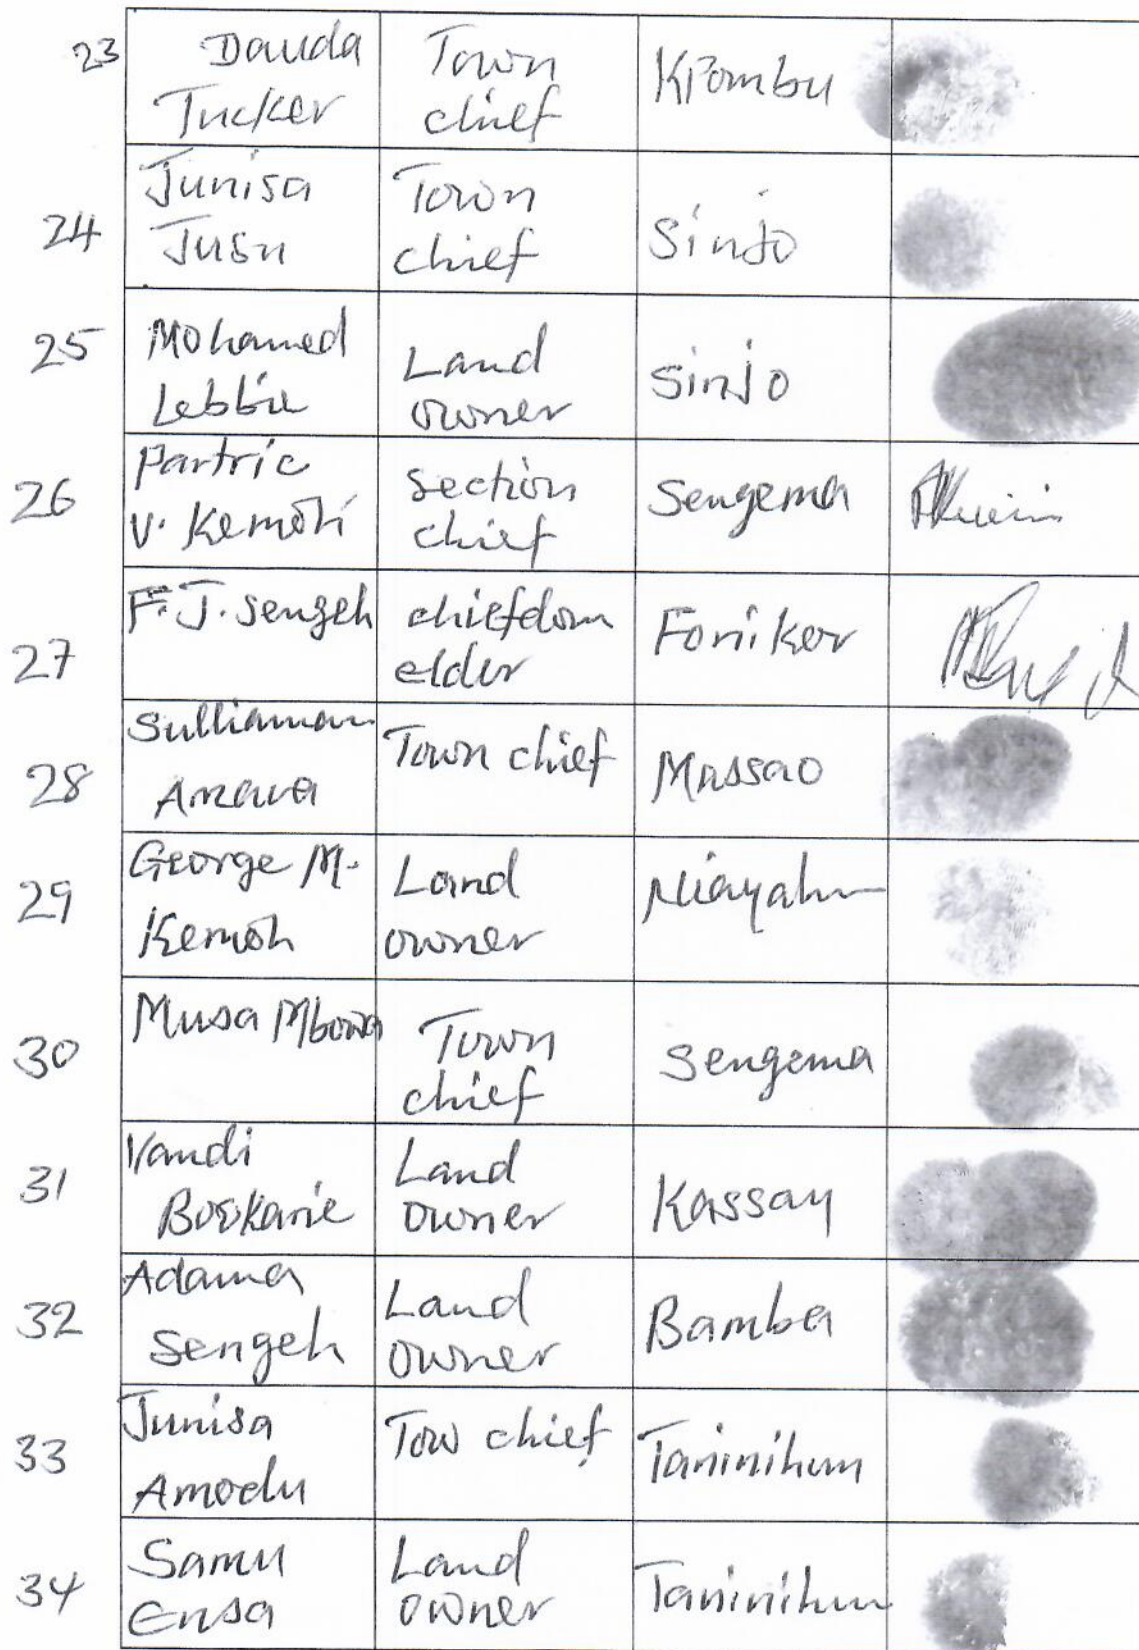 23 Dauda Tucker Town chief Kpombu
24 Junisa Jusu Town chief Sinjo
25 Mohamed Lebbie Land owner Sinjo
26 Partric V. Kemoh Section chief Sengema
27 F. J. Sengeh chiefdom elder Foniker
28 Sulliaman Amara Town chief Massao
29 George M. Kemoh Land owner
30 Musa Town chief Sengema
31 Vandi Bockarie Land owner Kassay
32 Adama Sengeh Land owner Bamba
33 Junisa Amodu Tow chief Taninihun
34 Samu Ensa Land owner Taninihun